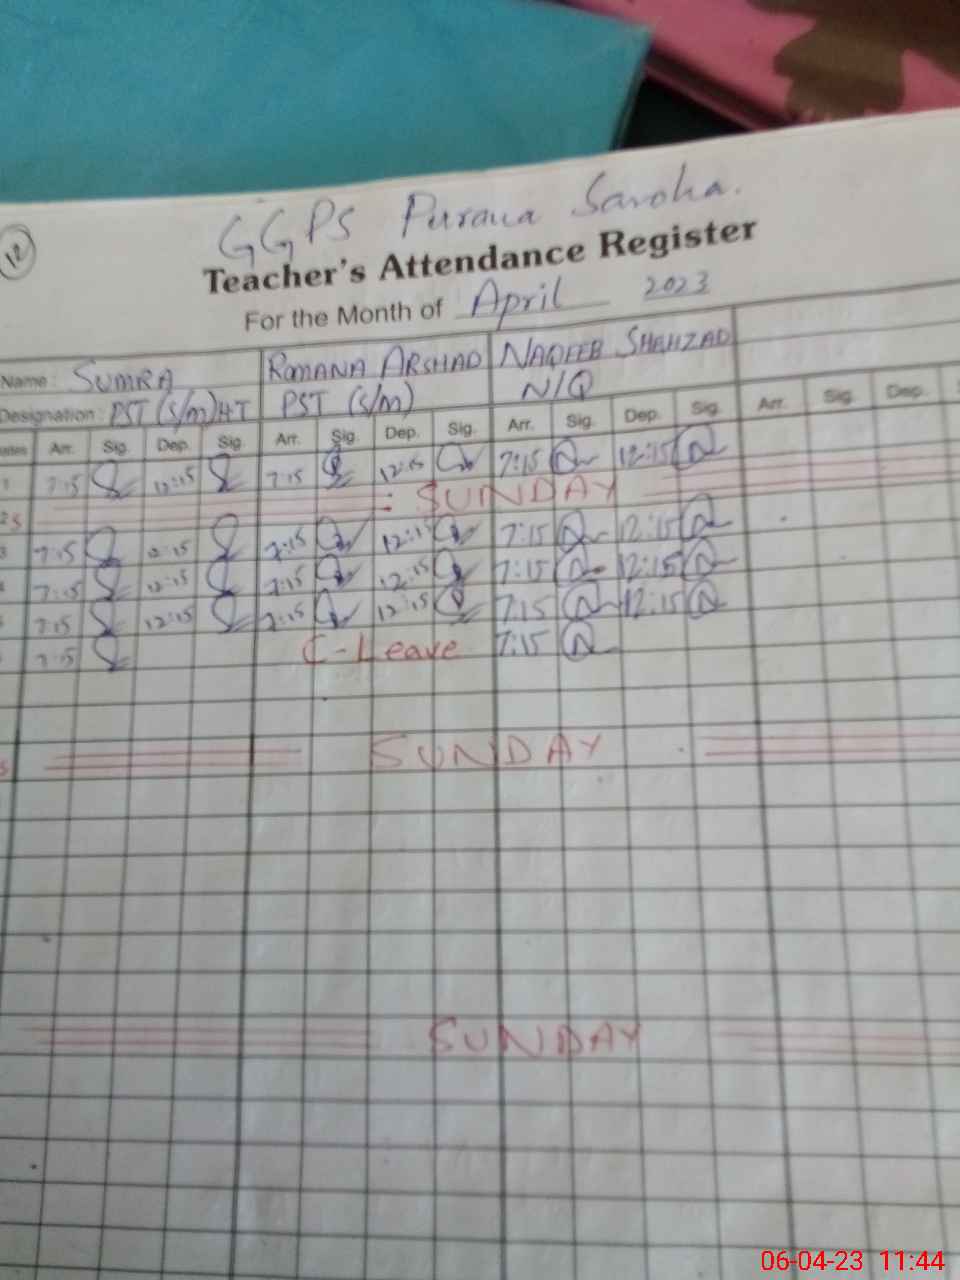 12
GGPS Purana Saroha.
Teacher's Attendance Register
For the Month of April 2023
Name: SUMRA ROMANA ARSHAD NAQEEB SHAHZAD
Designation: PST (S/M) HT PST (S/M) N/Q
Arr. Sig. Dep. Sig. Arr. Sig. Dep. Sig. Arr. Sig. Dep. Sig. Arr. Sig. Dep.
1 7:15 12:15 7:15 12:15 7:15 12:15
2 S SUNDAY
3 7:15 12:15 7:15 12:15 7:15 12:15
7:15 12:15 7:15 12:15 7:15 12:15
7:15 12:15 7:15 12:15 7:15 12:15
7:15 C-Leave 7:15
S SUNDAY
SUNDAY
06-04-23 11:44